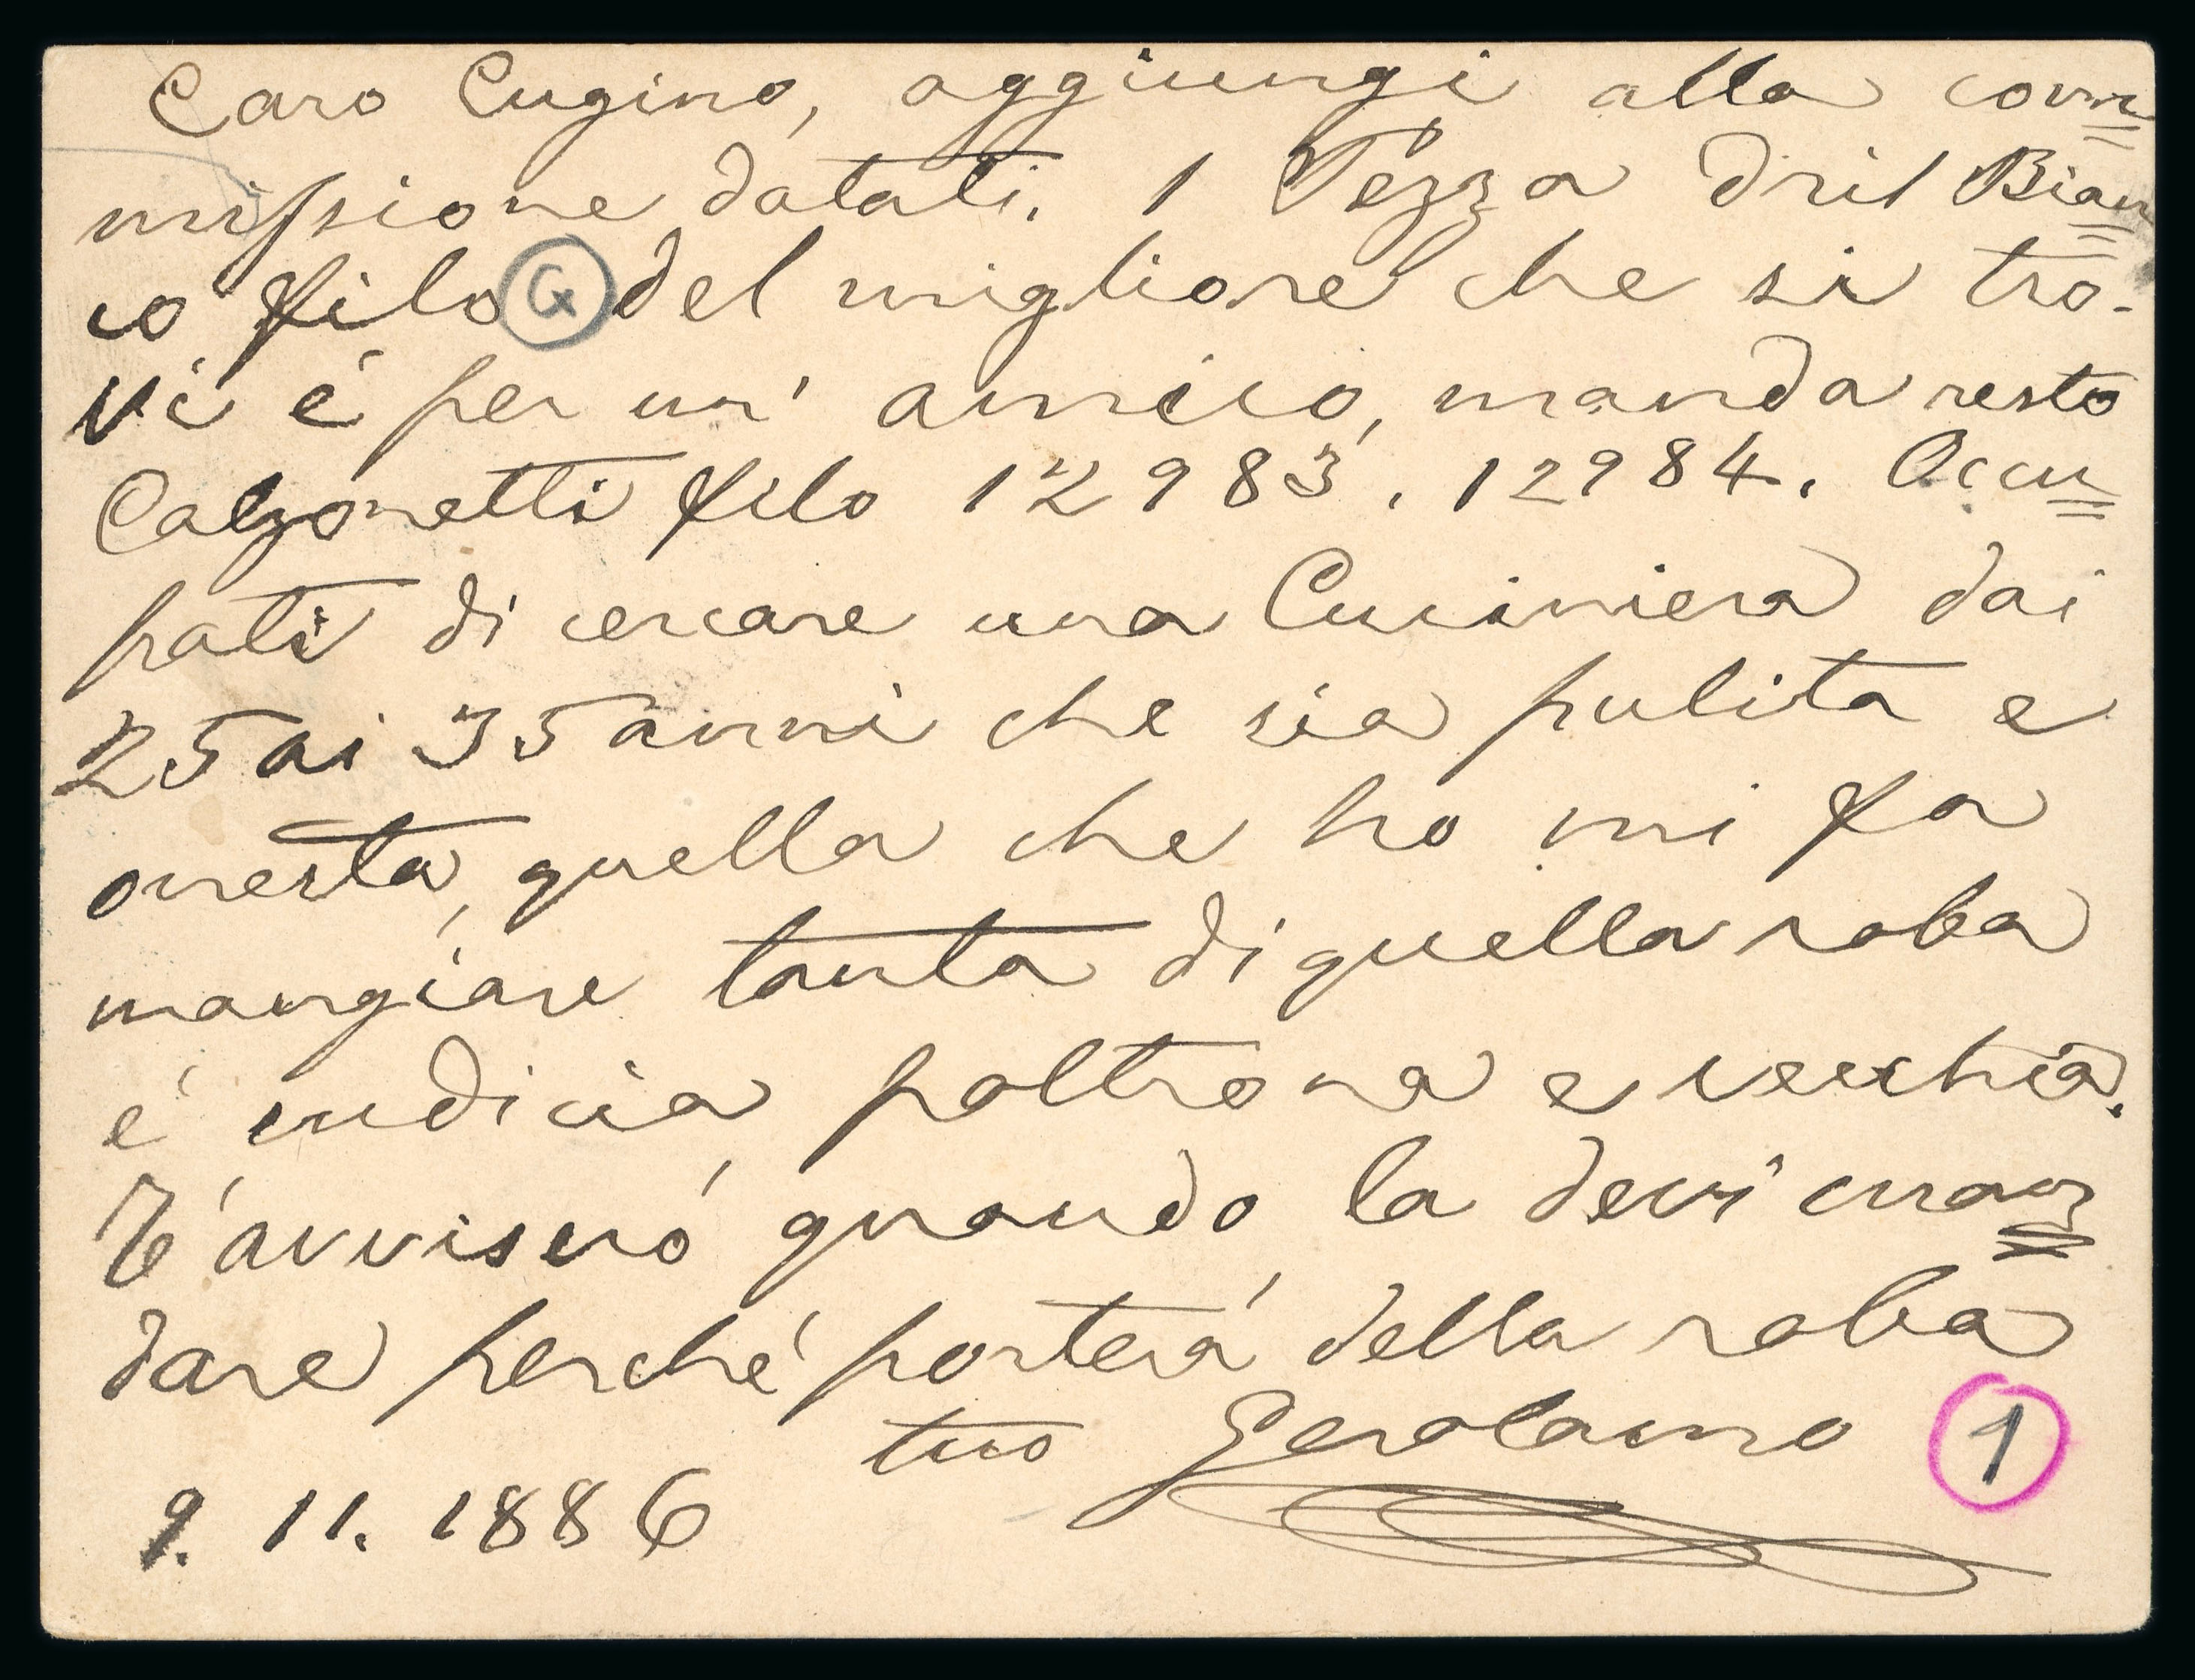 Caro Cugino, aggiungi alla com=
missione datati. 1 Pezza dril Bian=
co filo G del migliore che si tro-
vi é per un' amico, manda resto
Calzonetti filo 12983. 12984. Occu=
pati di cercare una Cuciniera dai
25 ai 35 anni che sia pulita e
onesta, quella che ho mi fa
mangiare tanta di quella roba
é sudicia poltrona e vecchia.
T'avviseró quando la devi man=
dare perché porterá della roba
tuo Gerolamo 1
9. 11. 1886